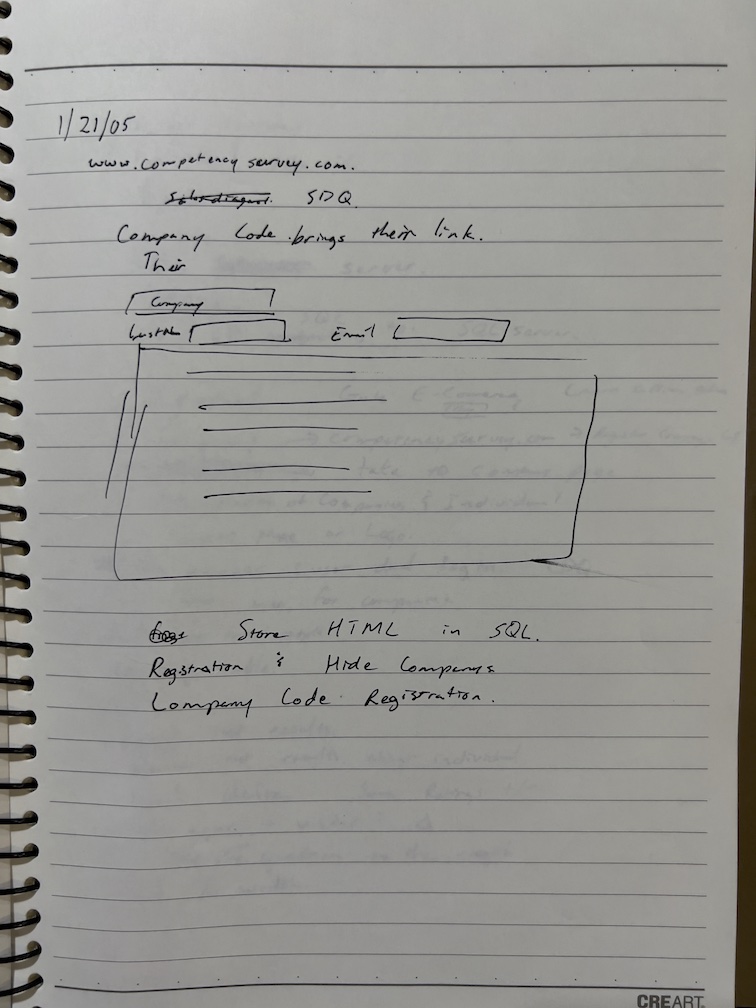 1/21/05
www.competencysurvey.com.
SDQ
Company Code brings their link.
Their
Company
Email
Store HTML in SQL.
Registration & Hide Companys
Company Code Registration.
CREART